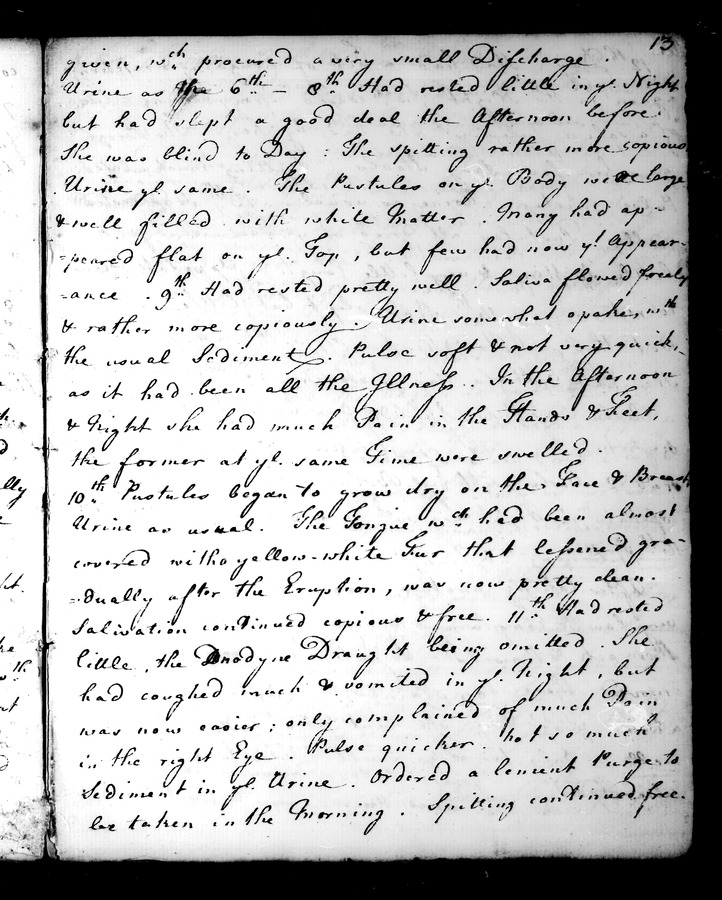 13
given, wch procured a very small Discharge.
Urine as the 6th — 8th Had rested little in ye. Night
but had slept a good deal the Afternoon before.
She was blind to Day : The spitting rather more copious
Urine ye same. The Pustules on ye. Body were large
& well filled with white Matter. Many had ap-
-peared flat on ye. Top, but few had now yt. Appear-
-ance. 9th Had rested pretty well. Saliva flowed freely
& rather more copiously. Urine somewhat opake, wth
the usual Sediment. Pulse soft & not very quick,
as it had been all the Illness. In the Afternoon
& Night she had much Pain in the Hands & Feet,
the former at ye. same Time were swelled.
10th Pustules began to grow dry on the Face & Breast,
Urine as usual. The Tongue wch had been almost
covered with a yellow-white Fur that lessened gra-
-dually after the Eruption, was now pretty clean.
Salivation continued copious & free. 11th Had rested
little, the Anodyne Draught being omitted. She
had coughed much & vomited in ye. Night, but
was now easier ; only complained of much Pain
in the right Eye. Pulse quicker. Not so much
Sediment in ye. Urine. Ordered a lenient Purge to
be taken in the Morning. Spitting continued free.